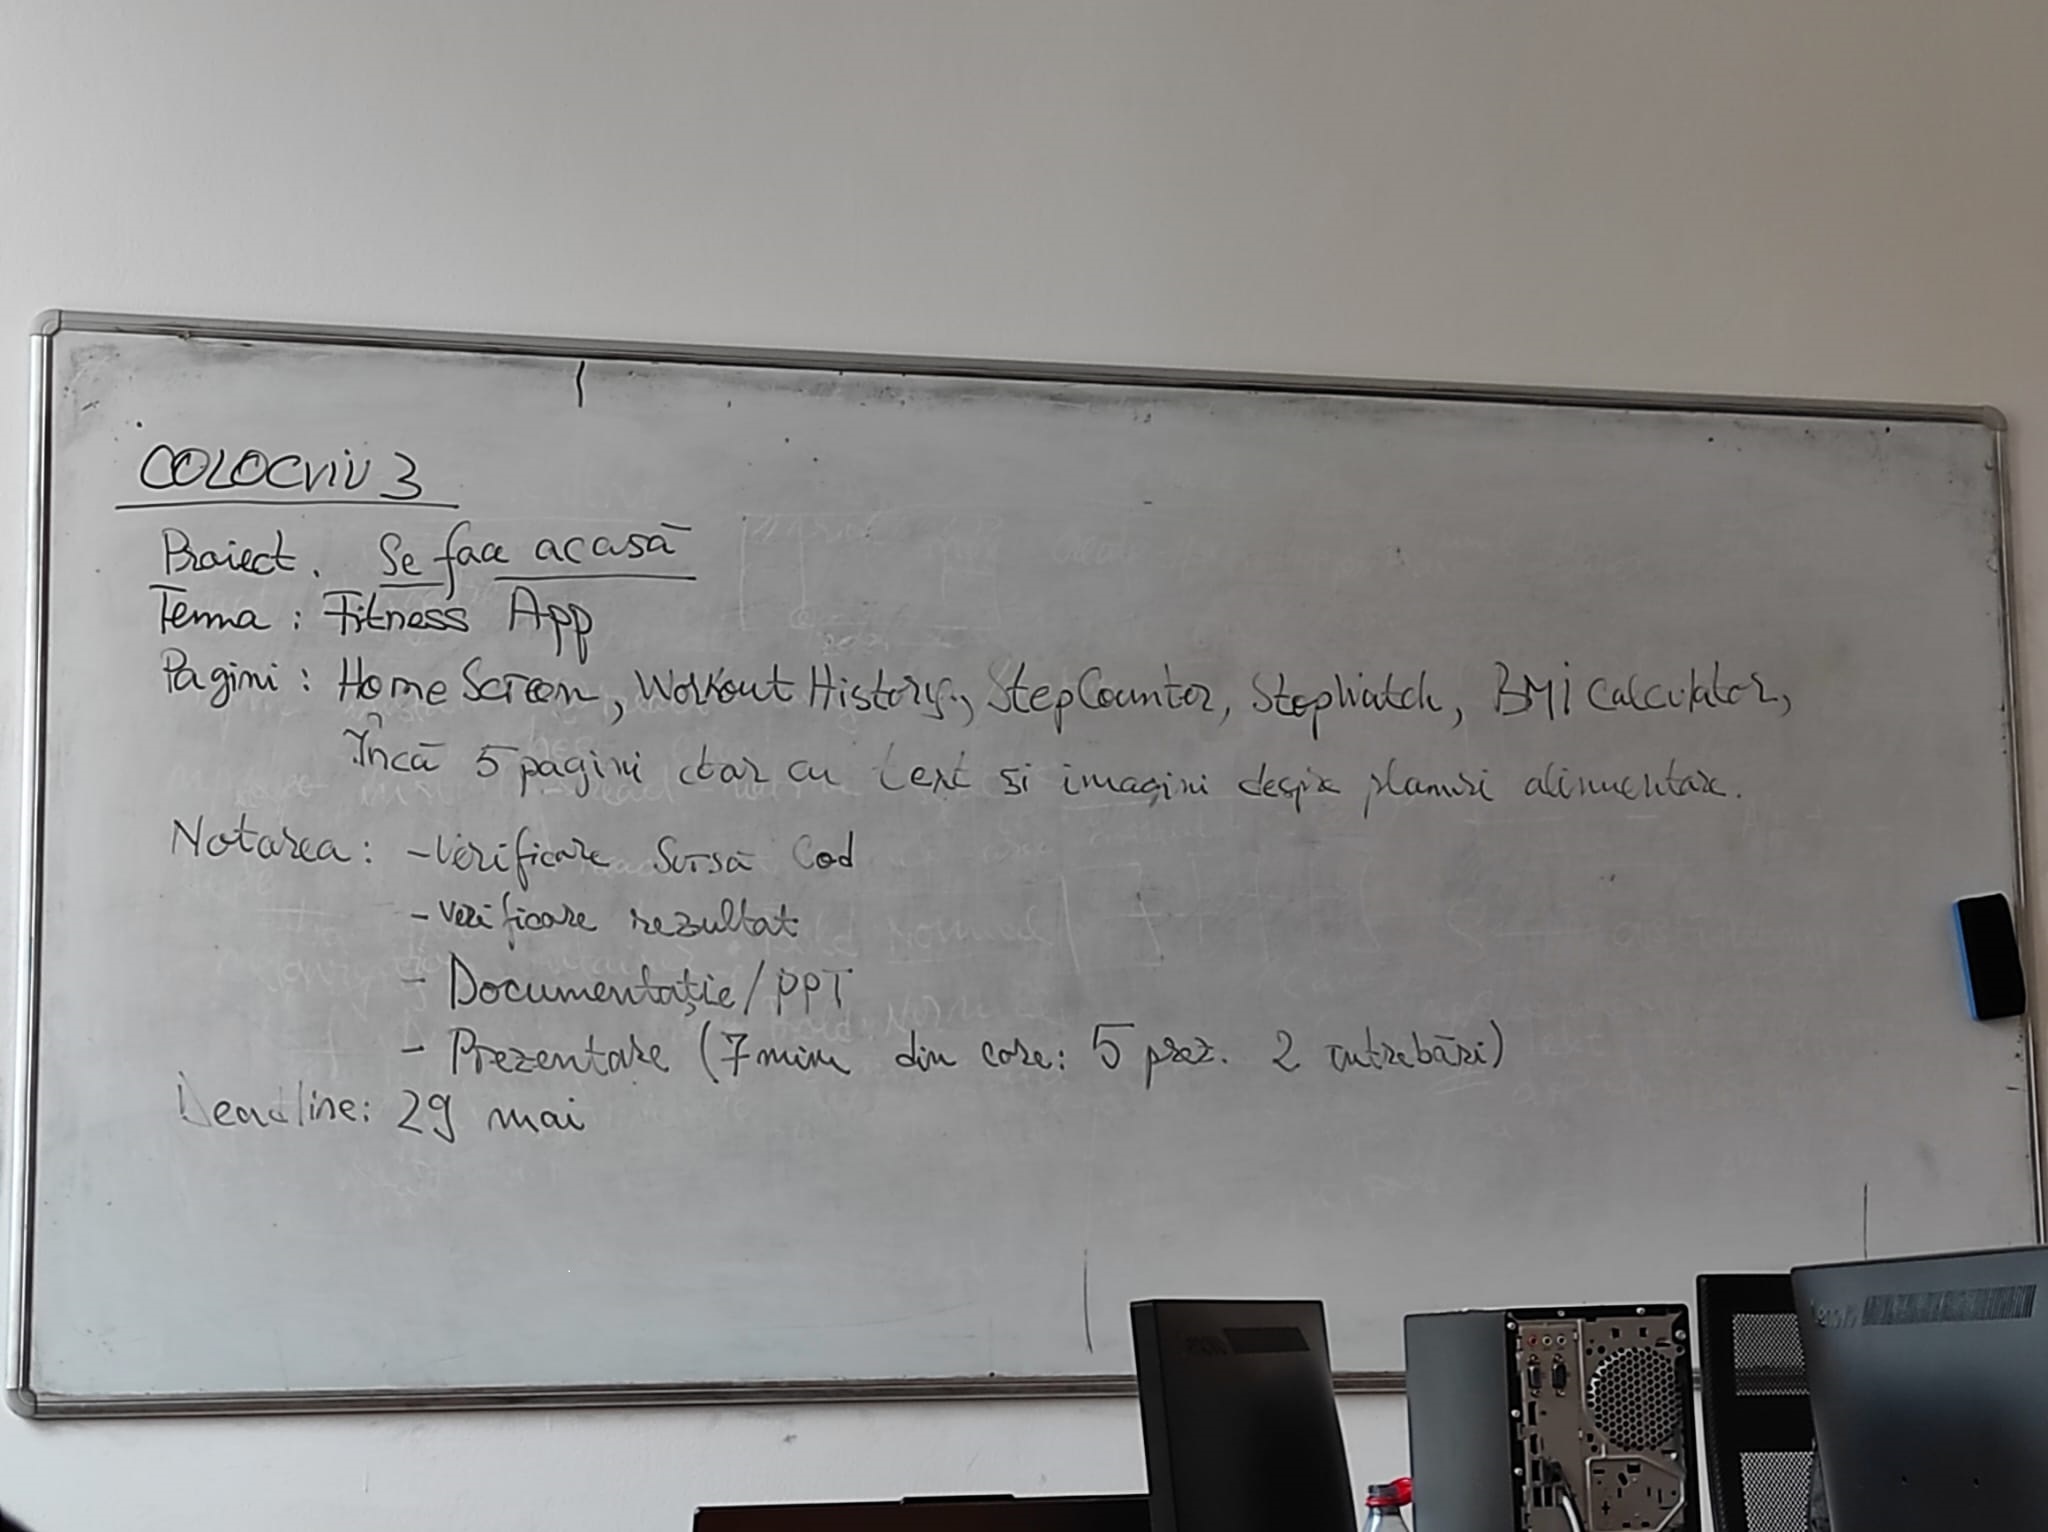 COLOCVIU 3
Proiect. Se face acasă
Tema: Fitness App
Pagini: Home Screen, Workout History, StepCounter, StopWatch, BMI Calculator,
Încă 5 pagini doar cu text și imagini despre planuri alimentare.
Notarea: - Verificare Sursă Cod
- Verificare rezultat
- Documentație/PPT
- Prezentare (7 min din care: 5 prez. 2 întrebări)
Deadline: 29 mai